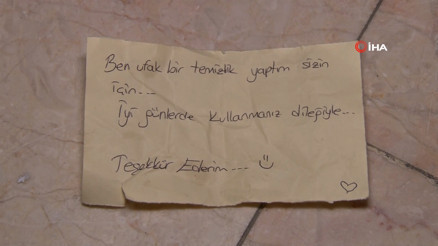 İHA
Ben ufak bir temizlik yaptım sizin
için...
İyi günlerde kullanmanız dileğiyle...
Teşekkür Ederim...